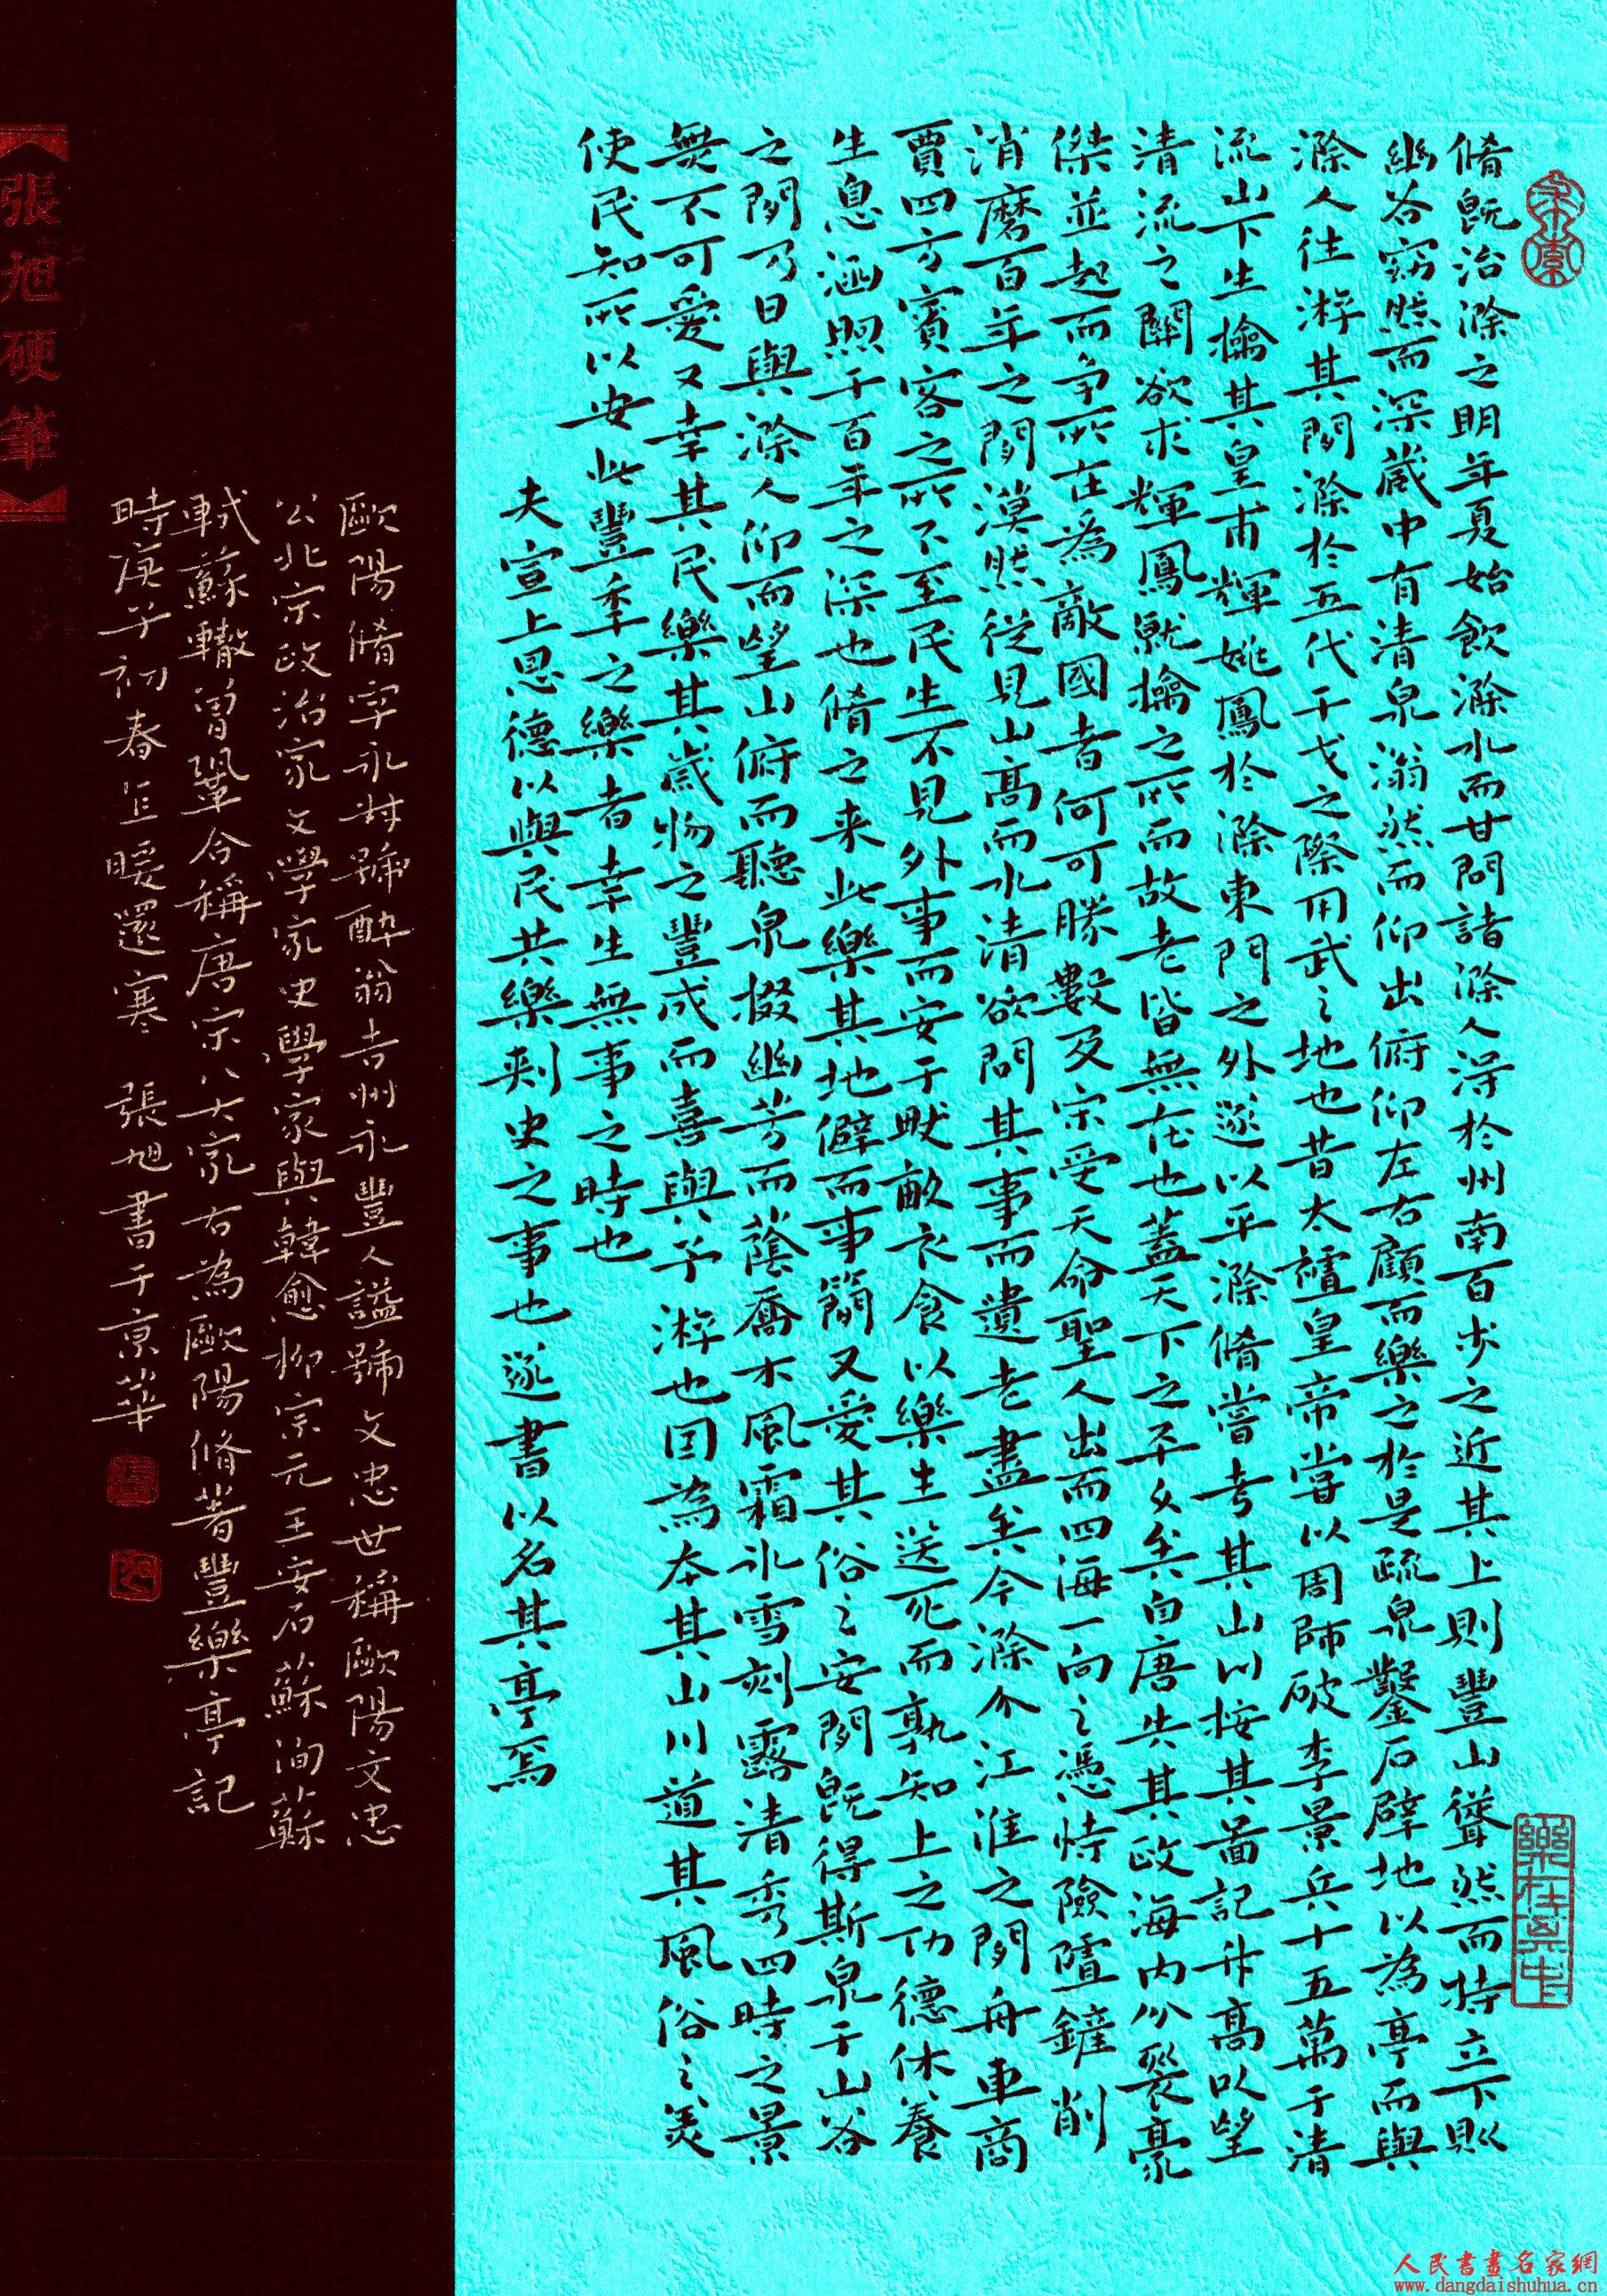 脩既治滁之明年夏始飲滁水而甘問諸滁人得於州南百步之近其上則豐山聳然而特立下則
幽谷窈然而深藏中有清泉滃然而仰出俯仰左右顧而樂之於是疏泉鑿石闢地以為亭而與
滁人往游其間滁於五代干戈之際用武之地也昔太祖皇帝嘗以周師破李景兵十五萬于清
流山下生擒其皇甫輝姚鳳於滁東門之外遂以平滁脩嘗考其山川按其圖記升高以望
清流之關欲求輝鳳就擒之所而故老皆無在也蓋天下之平久矣自唐失其政海內分裂豪
傑並起而爭所在為敵國者何可勝數及宋受天命聖人出而四海一向之憑恃險阻鏟削
消磨百年之間漠然徒見山高而水清欲問其事而遺老盡矣今滁介江淮之間舟車商
賈四方賓客之所不至民生不見外事而安于畎畝衣食以樂生送死而孰知上之功德休養
生息涵煦于百年之深也脩之来此樂其地僻而事簡又愛其俗之安閒既得斯泉于山谷
之間乃日與滁人仰而望山俯而聽泉掇幽芳而蔭喬木風霜氷雪刻露清秀四時之景
無不可愛又幸其民樂其歲物之豐成而喜與予游也因為本其山川道其風俗之美
使民知所以安此豐年之樂者幸生無事之時也
夫宣上恩德以與民共樂刺史之事也遂書以名其亭焉
歐陽脩字永叔號醉翁吉州永豐人謚號文忠世稱歐陽文忠
公北宗政治家文學家史學家與韓愈柳宗元王安石蘇洵蘇
軾蘇轍曾鞏合稱唐宗八大家右為歐陽脩著豐樂亭記
時庚子初春乍暖還寒 張旭書于京華
張旭硬筆
人民書畫名家網
www.dangdaishuhua.cn